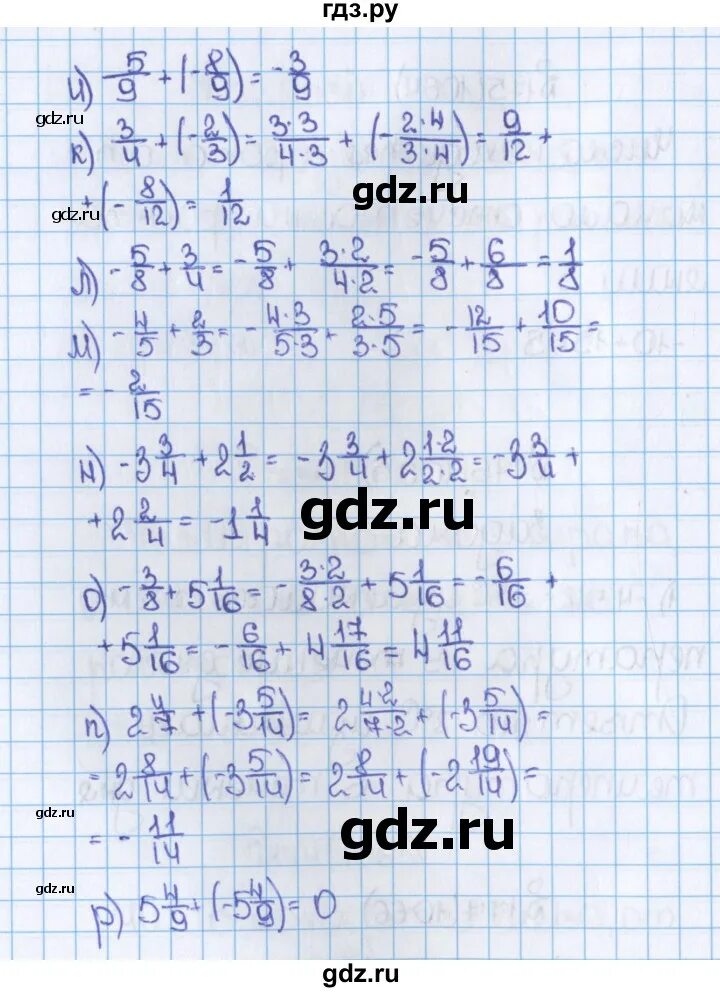 гдз.ру
и) 5/9 + (-8/9) = -3/9
gdz.ru
к) 3/4 + (-2/3) = 3·3/4·3 + (-2·4/3·4) = 9/12 +
+ (-8/12) = 1/12
gdz.ru
gdz.ru
л) -5/8 + 3/4 = -5/8 + 3·2/4·2 = -5/8 + 6/8 = 1/8
м) -4/5 + 2/3 = -4·3/5·3 + 2·5/3·5 = -12/15 + 10/15 =
= -2/15
н) -3 3/4 + 2 1/2 = -3 3/4 + 2 1·2/2·2 = -3 3/4 +
+ 2 2/4 = -1 1/4
gdz.ru
о) -3/8 + 5 1/16 = -3·2/8·2 + 5 1/16 = -6/16 +
+ 5 1/16 = -6/16 + 4 17/16 = 4 11/16
п) 2 4/7 + (-3 5/14) = 2 4·2/7·2 + (-3 5/14) =
= 2 8/14 + (-3 5/14) = 2 8/14 + (-2 19/14) =
gdz.ru
gdz.ru
= -11/14
gdz.ru
р) 5 4/9 + (-5 4/9) = 0
gdz.ru